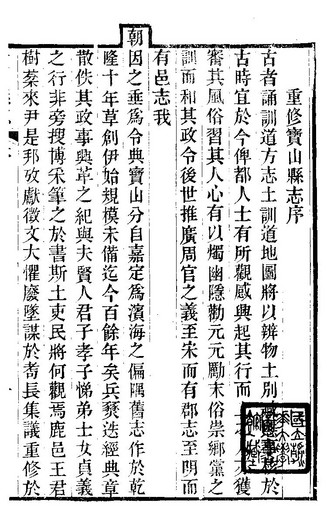 重修寶山縣志序
古者誦訓道方志土訓道地圖將以辨物土別
於
古時宜於今俾都人士有所觀感興起其行而
人欠獲
審其風俗習其人心有以燭幽隱勸元元勵末俗崇鄉黨之
訓而和其政令後世推廣周官之義至宋而有郡志至明而
有邑志我
朝因之垂為令典寶山分自嘉定為濱海之偏隅舊志作於乾
隆十年草創伊始規模未備迄今百餘年矣兵燹迭經典章
散佚其政事興革之紀與夫賢人君子孝子悌弟士女貞義
之行非旁搜博采筆之於書斯土吏民將何觀焉鹿邑王君
樹棻來尹是邦攷獻徵文大懼廢墜謀於耆長集議重修於